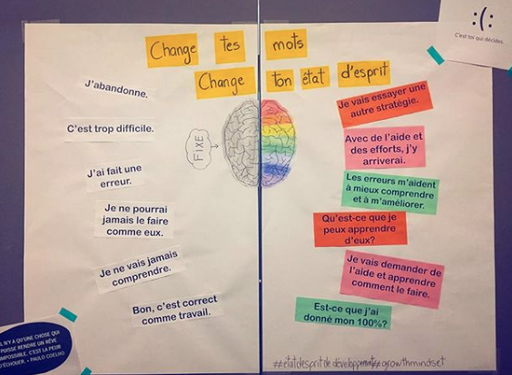 Change tes mots
Change ton état d'esprit
:(:
C'est toi qui décides.
J'abandonne.
C'est trop difficile.
J'ai fait une
erreur.
Je ne pourrai
jamais le faire
comme eux.
Je ne vais jamais
comprendre.
Bon, c'est correct
comme travail.
FIXE
Je vais essayer une
autre stratégie.
Avec de l'aide et
des efforts, j'y
arriverai.
Les erreurs m'aident
à mieux comprendre
et à m'améliorer.
Qu'est-ce que je
peux apprendre
d'eux?
Je vais demander de
l'aide et apprendre
comment le faire.
Est-ce que j'ai
donné mon 100%?
#étatdespritdedéveloppement #growthmindset
IL N'Y A QU'UNE CHOSE QUI
PUISSE RENDRE UN RÊVE
IMPOSSIBLE, C'EST LA PEUR
D'ÉCHOUER. - PAULO COELHO